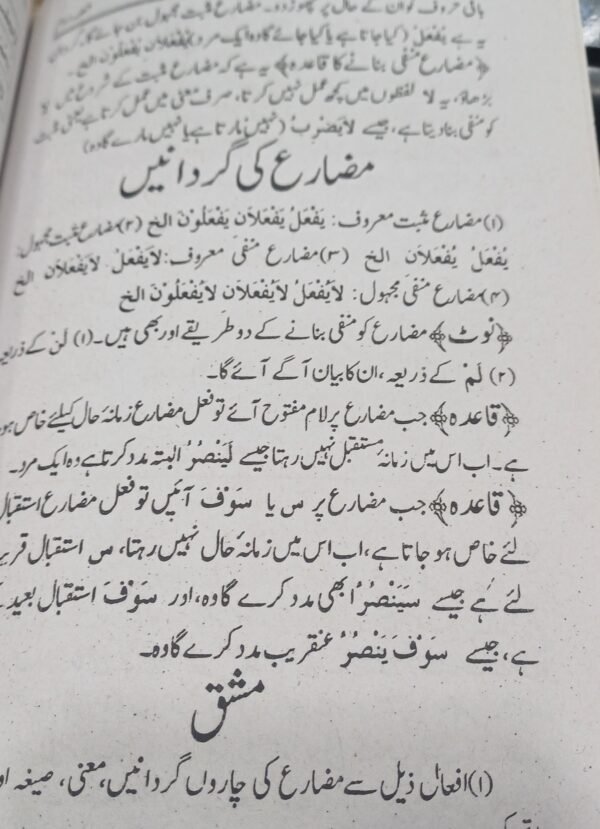 باقی حروف کو ان کے حال پر چھوڑ دو۔ مضارع مثبت مجہول بن جائے گا، گردان
یہ ہے یُفْعَلُ (کیا جاتا ہے یا کیا جائے گا وہ ایک مرد) یُفْعَلاَنِ یُفْعَلُوْنَ الخ۔
﴿مضارع منفی بنانے کا قاعدہ﴾ یہ ہے کہ مضارع مثبت کے شروع میں لا
بڑھاؤ، یہ لا لفظوں میں کچھ عمل نہیں کرتا، صرف معنی میں عمل کرتا ہے یعنی مثبت
کو منفی بنا دیتا ہے، جیسے لاَیَضْرِبُ (نہیں مارتا ہے یا نہیں مارے گا وہ)
مضارع کی گردانیں
(۱) مضارع مثبت معروف: یَفْعَلُ یَفْعَلاَنِ یَفْعَلُوْنَ الخ (۲) مضارع مثبت مجہول:
یُفْعَلُ یُفْعَلاَنِ الخ (۳) مضارع منفی معروف: لاَیَفْعَلُ لاَیَفْعَلاَنِ الخ
(۴) مضارع منفی مجہول: لاَیُفْعَلُ لاَیُفْعَلاَنِ لاَیُفْعَلُوْنَ الخ
﴿نوٹ﴾ مضارع کو منفی بنانے کے دو طریقے اور بھی ہیں۔ (۱) لَنْ کے ذریعہ
(۲) لَمْ کے ذریعہ، ان کا بیان آگے آئے گا۔
﴿قاعدہ﴾ جب مضارع پر لام مفتوح آئے تو فعل مضارع زمانۂ حال کیلئے خاص ہو
ہے۔ اب اس میں زمانۂ مستقبل نہیں رہتا جیسے لَیَنْصُرُ البتہ مدد کرتا ہے وہ ایک مرد۔
﴿قاعدہ﴾ جب مضارع پر س یا سَوْفَ آئیں تو فعل مضارع استقبال
لئے خاص ہو جاتا ہے، اب اس میں زمانۂ حال نہیں رہتا، س استقبال قریب
لئے ہے جیسے سَیَنْصُرُ ابھی مدد کرے گا وہ، اور سَوْفَ استقبال بعید
ہے، جیسے سَوْفَ یَنْصُرُ عنقریب مدد کرے گا وہ۔
مشق
(۱) افعال ذیل سے مضارع کی چاروں گردانیں، معنی، صیغہ او